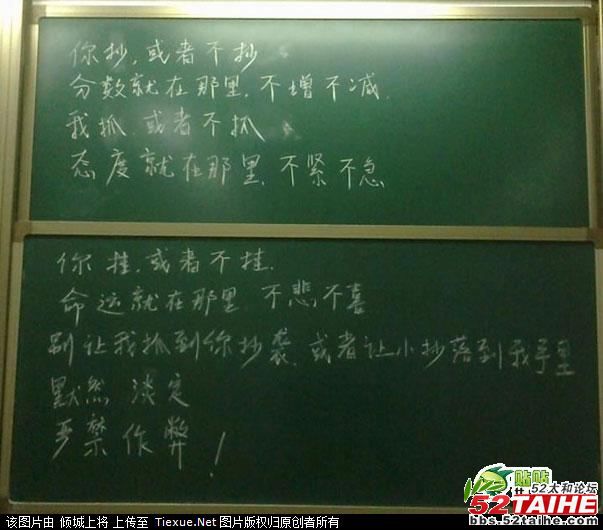 你抄,或者不抄
分数就在那里,不增不减.
我抓,或者不抓
态度就在那里,不紧不急
你挂,或者不挂.
命运就在那里 不悲不喜
别让我抓到你抄袭,或者让小抄落到我手里
默然 淡定
严禁作弊!
贴贴
52太和论坛
52TAIHE
bbs.52taihe.com
该图片由 倾城上将 上传至 Tiexue.Net 图片版权归原创者所有